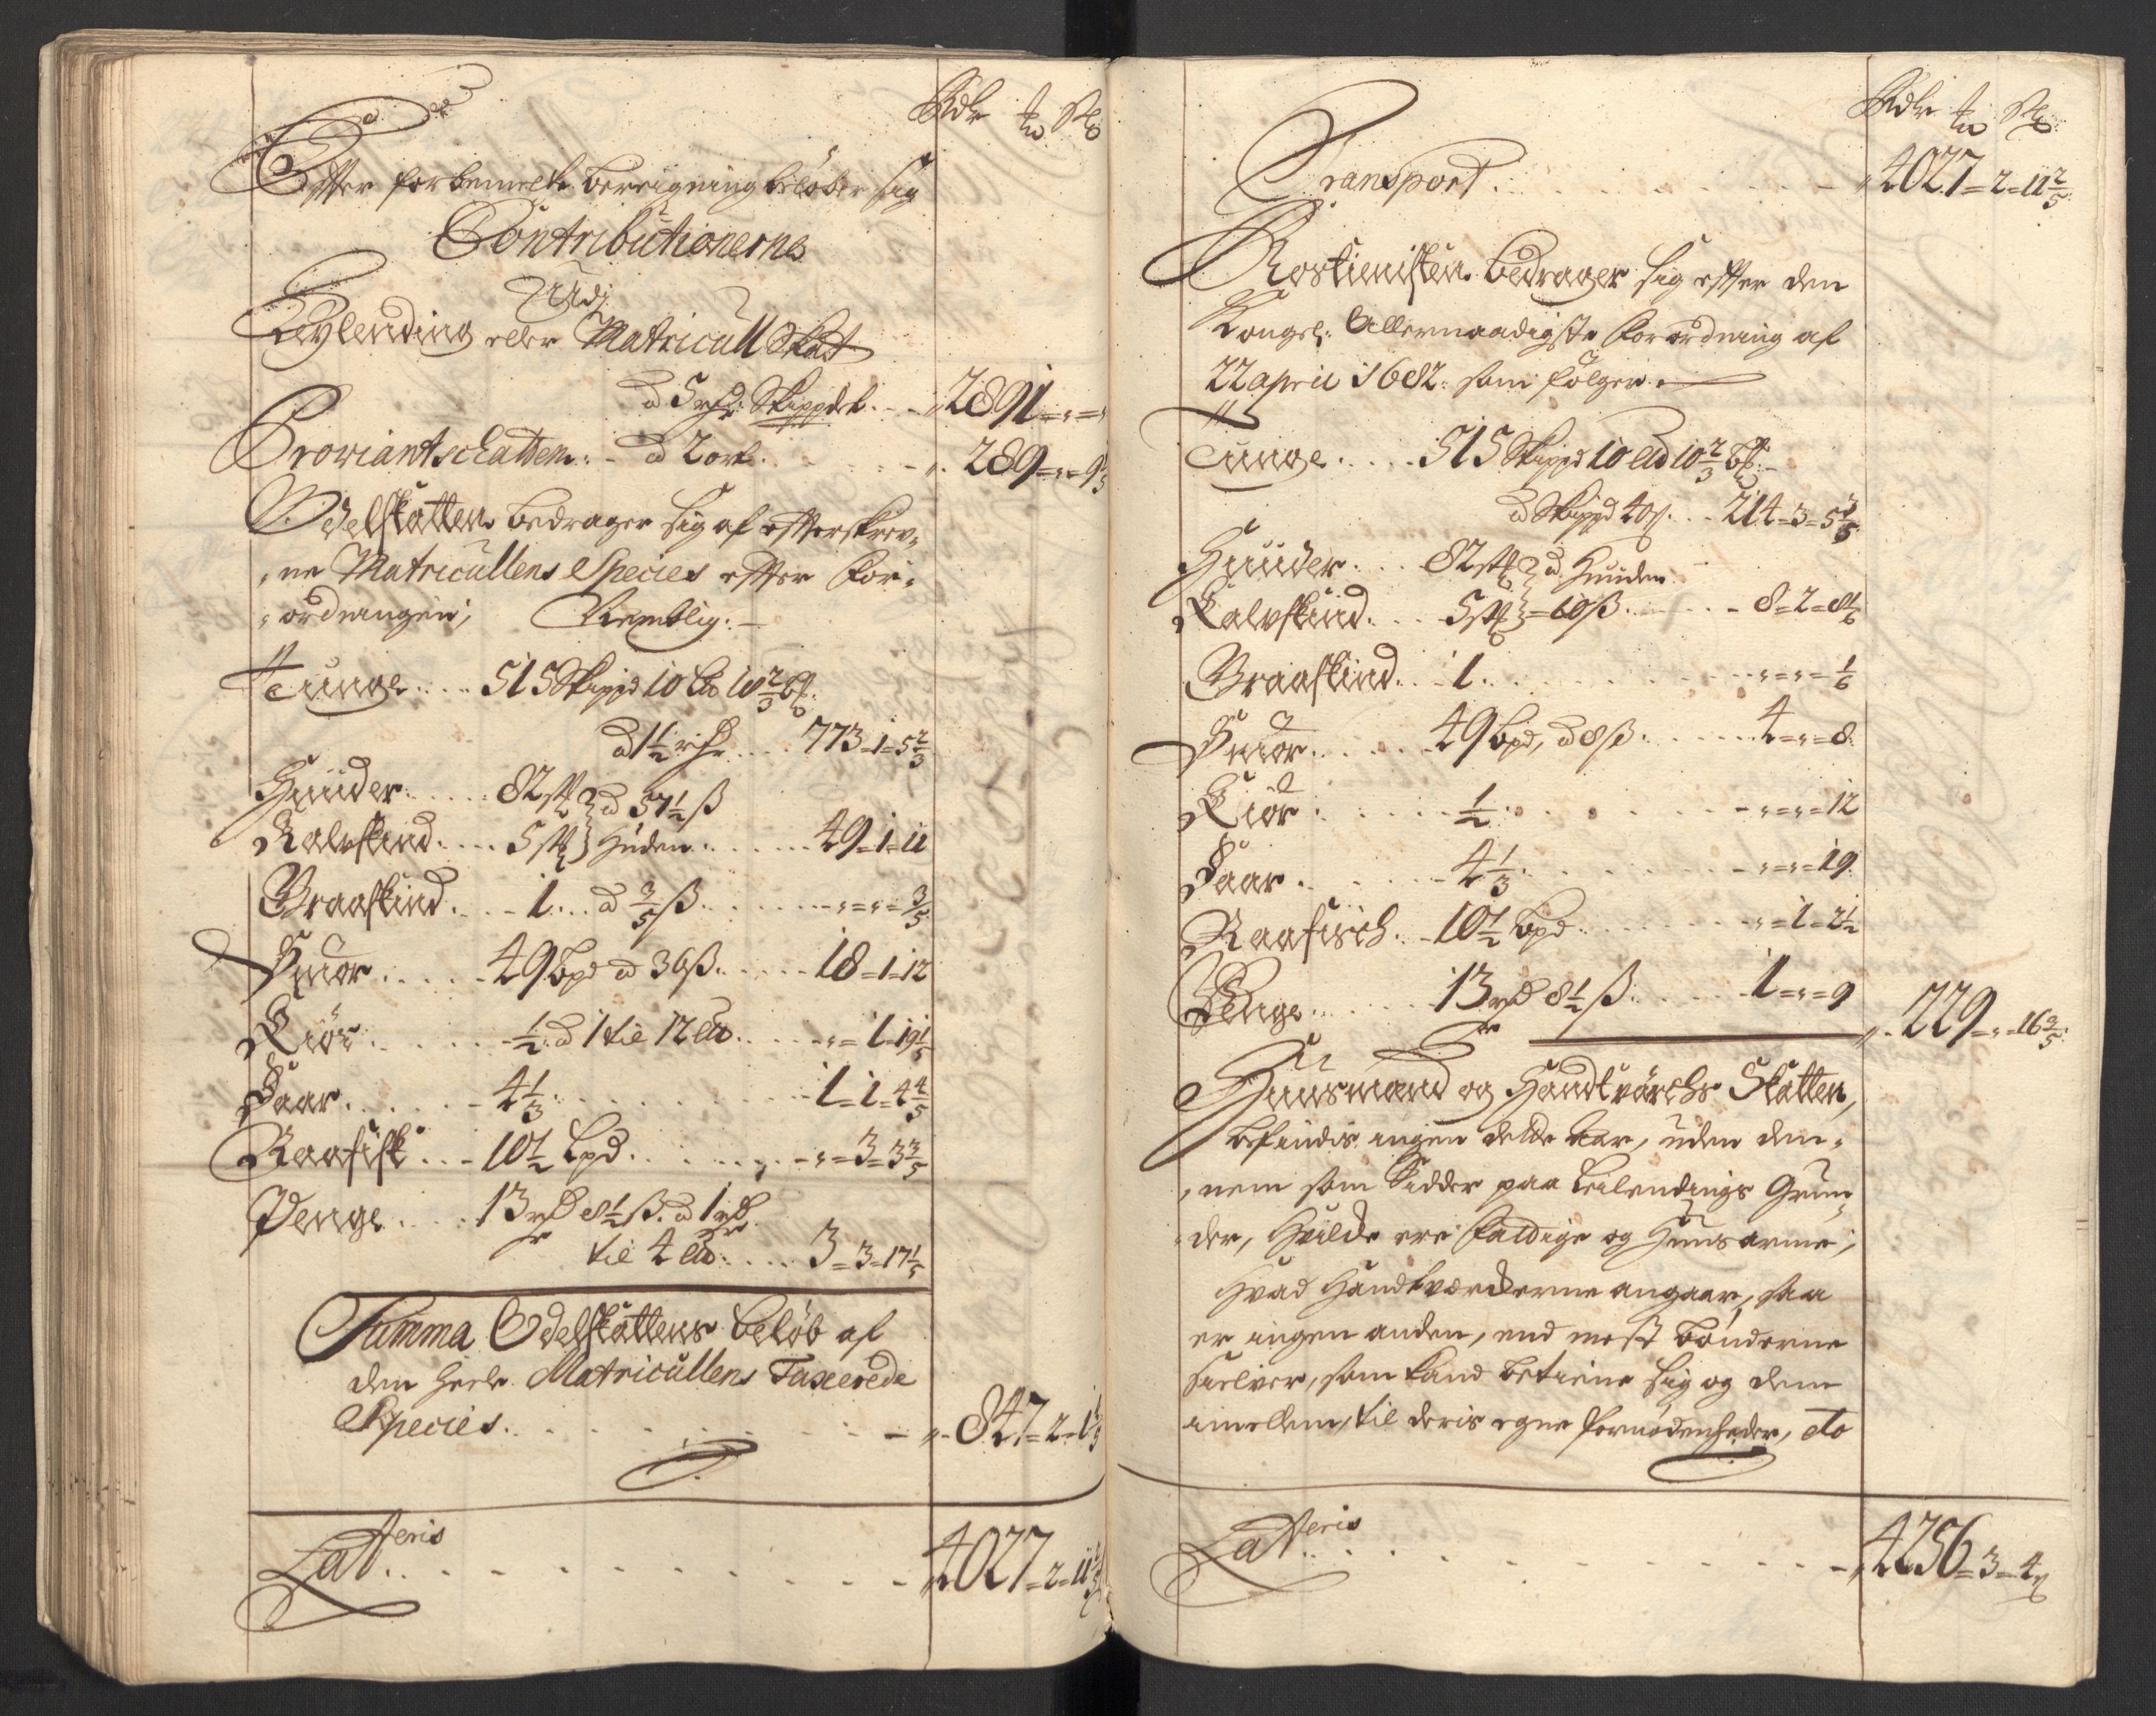 Rdr
Efter forbemelte Bereigning beløber sig
Contributionerne
Udj
Leylending eller Matricull Skat
à 5 rdr: Skippdt. . . 2891 = „ = „
Proviantschatten: - à 2 ort. . . 289 = „ = 9 1/5
Odelskatten bedrager sig af efterskrev„
„ne Matricullens Species efter For„
„ordningen, Nemblig:
Tunge . . . 515 Skippd 10 Ld 10 2/3 
à 1 1/2 rdr . . . 773 = 1 = 5 2/3
Huuder . . . 82 st
à 57 1/2 ß
Kalvskind . . . 5 st Huden . . . 49 = 1 = 11
Graaskind . . . 1 . . à 3/5 ß . . . „ = „ = 3/5
Smør . . . 49 bpd à 36 ß . . . 18 = 1 = 12
Kiør . . . 1/2 à 1 til 12 Ld . . . „ = 1 = 19 1/5
Faar . . . 4 1/3 . . . 1 = 1 = 4 4/5
Raafisk . . . 10 1/2 Lpd . . . „ = 3 = 3 3/5
Penge . . . 13 rd 8 1/2 ß. à 1 rd
til 4 Ld . . . 3 = 3 = 17 1/5
Summa Odelskattens Beløb af
den heele Matricullens Taxerede
Species . . . 847 = 2 = 1
Latteris . . . 4027 = 2 = 11
Rdr
Transport . . . 4027 = 2 = 11 2/5
Rostienisten Bedrager sig efter den
Kongel: Allernaadigste Forordning af
22 april 1682: som følger
Tunge . . . 515 Skippd 10 Ld 10 2/3
à Skippd 40 ß . . . 214 = 3 = 5
Huuder . . . 82 st à Huuden
Kalvskind . . . 5 st = 10 ß . . . 8 = 2 = 8 1/6
Graaskind . . 1 . . . „ = „ = 1/6
Smør . . . 49 bpd, à 8 ß . . . 4 = „ = 8
Kiør . . . 1/2 . . . „ = „ = 12
Faar . . . 4 1/3 . . . „ = „ = 19
Raafisch . . 10 1/2 bpd . . . „ = 1 = 2 1/2
Penge . . . 13 rd 8 1/2 ß . . . 1 = „ = 9
229 = „ = 16 2/5
Huusmand og Handtværchs Skatten,
befindis ingen dette Aar, uden den„
„nem som Sidder paa Leilendings Grun„
„der, Hvilde ere Fattige og Huusarme,
Hvad Handtværckerne angaar, saa
er ingen anden, end mest bønderne
sielver, som kand betiene sig og dem
imellem, til deris egne fornødenheder, do
Latteris . . . 4256 = 3 = 4